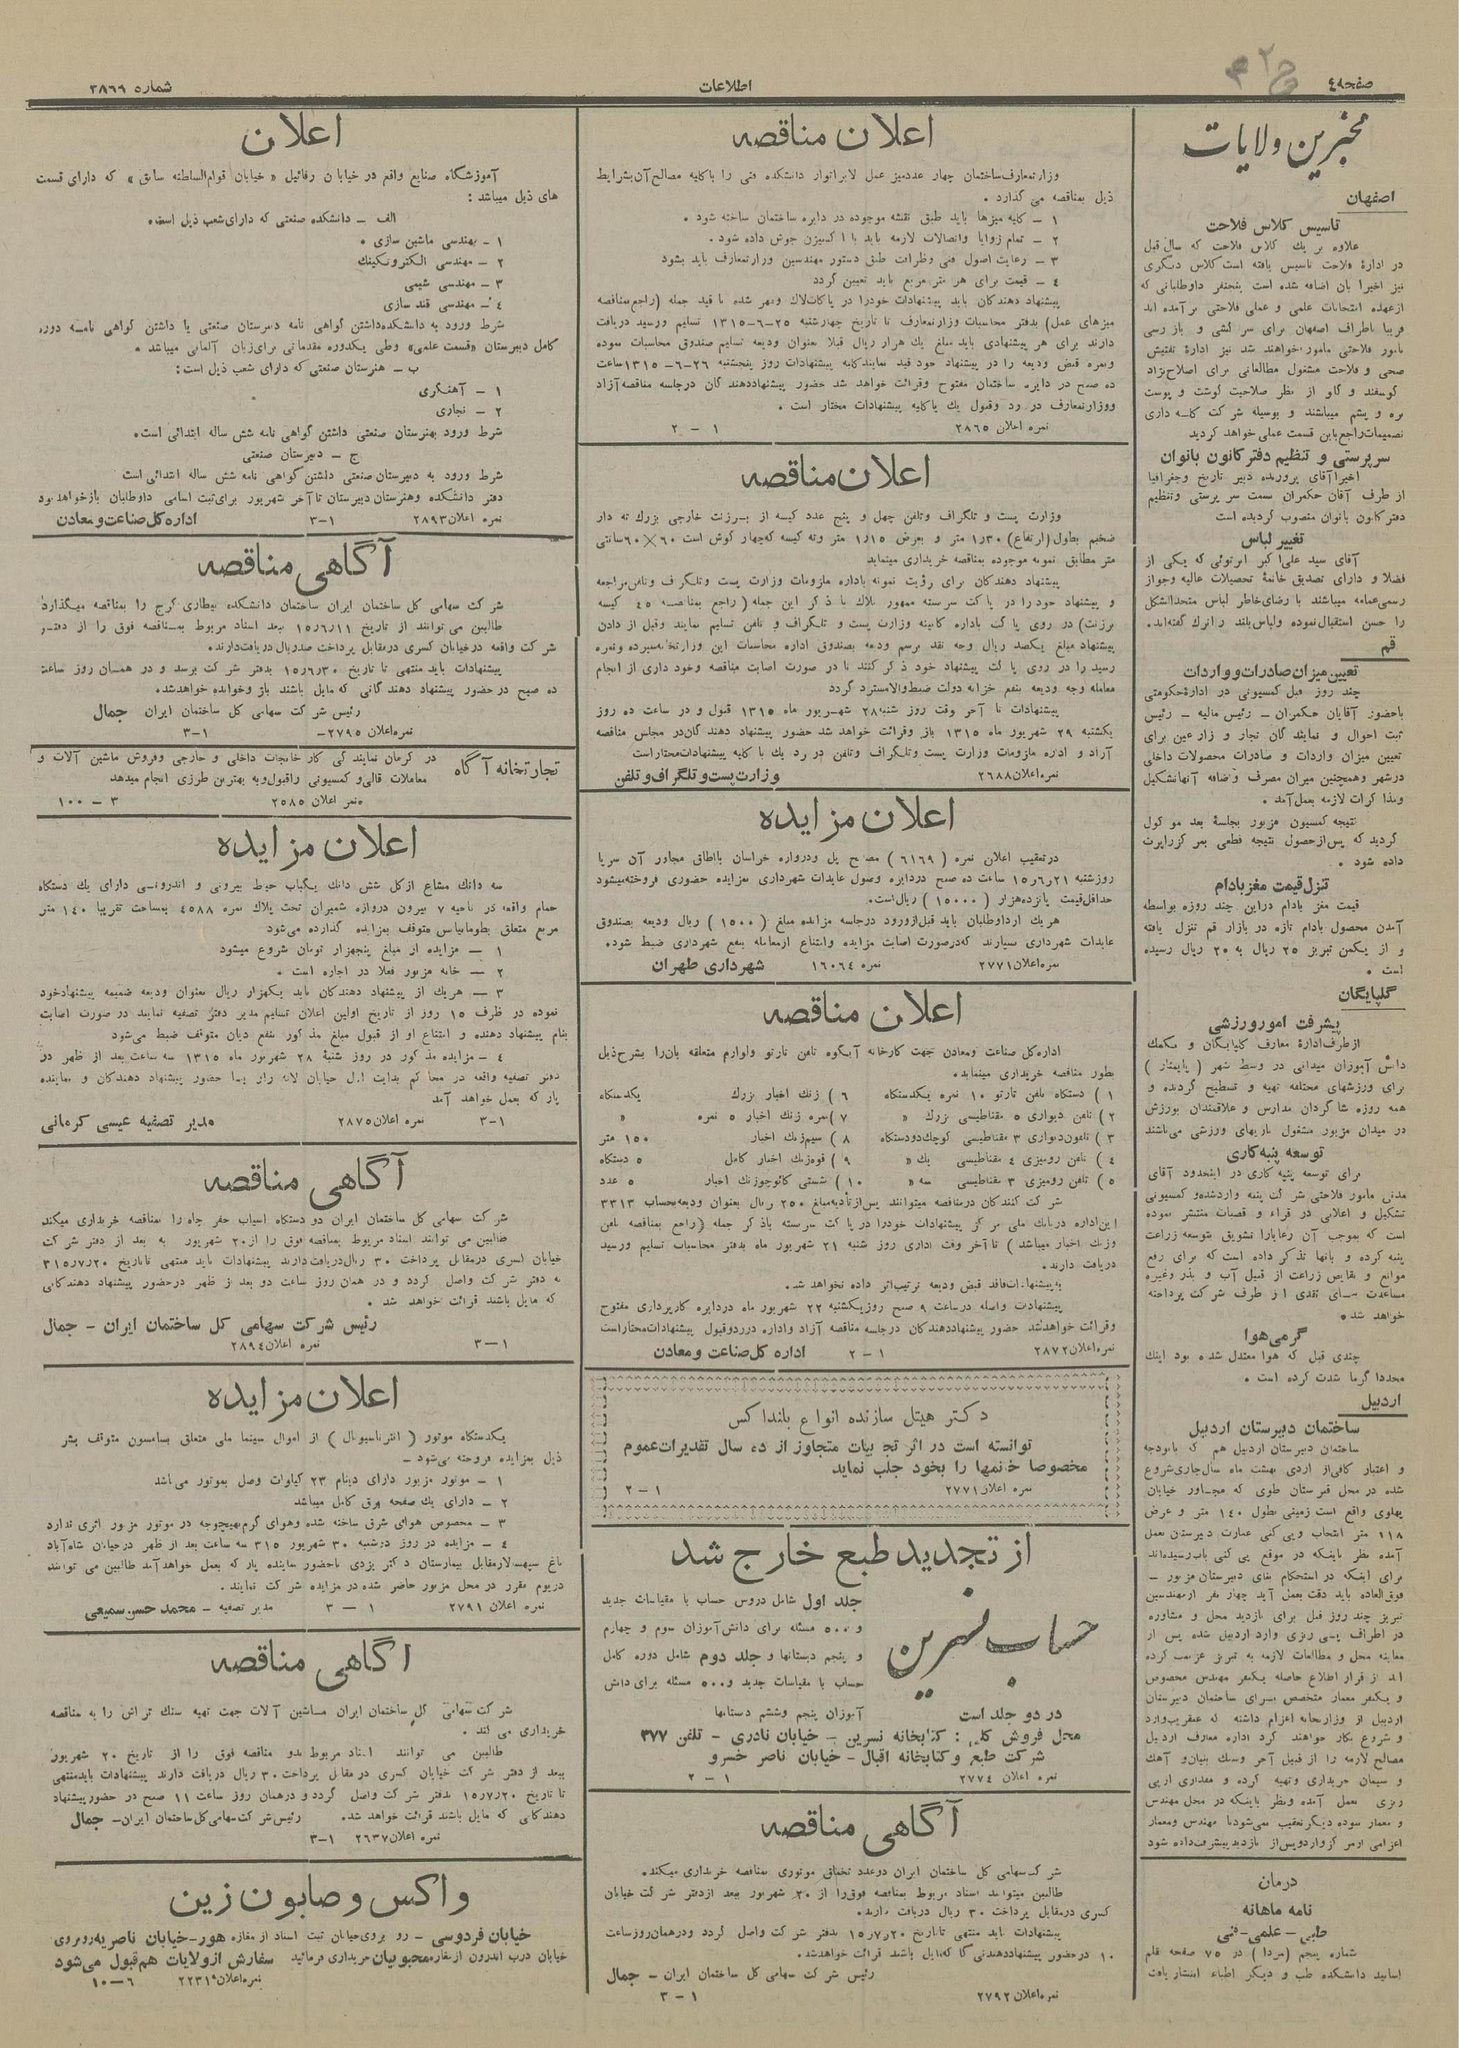 صفحه ٤
اطلاعات
شماره ۲۸٦۹
مخبرین ولایات
اصفهان
تاسیس کلاس فلاحت
علاوه بر یك کلاس فلاحت که سال قبل
در ادارهٔ فلاحت تاسیس یافته است کلاس دیگری
نیز اخیرا بان اضافه شده است پنجنفر داوطلبانی که
ازعهده انتخابات علمی و عملی فلاحتی برآمده اند
قریبا باطراف اصفهان برای سرکشی و بازرسی
مامور فلاحتی مامور خواهند شد نیز ادارهٔ تفتیش
صحی و فلاحت مشغول مطالعاتی برای اصلاح نژاد
گوسفند و گاو از نظر صلاحیت گوشت و پوست
بره و پشم میباشند و بوسیله شرکت کاسه داری
تصمیمات راجع باین قسمت عملی خواهد کردید
سرپرستی و تنظیم دفتر کانون بانوان
اخیرا آقای پرورنده دبیر تاریخ وجغرافیا
از طرف آقای حکمران بسمت سرپرستی وتنظیم
دفتر کانون بانوان منصوب گردیده است
تغییر لباس
آقای سید علی اکبر ابرقوئی که یکی از
فضلا و دارای تصدیق خاتمهٔ تحصیلات عالیه وجواز
رسمی عمامه میباشند با رضای خاطر لباس متحدالشکل
را حسن استقبال نموده ولباس بلند را ترك گفته اند.
قم
تعیین میزان صادرات و واردات
چند روز قبل کمسیونی در ادارهٔ حکومتی
باحضور آقایان حکمران - رئیس مالیه - رئیس
ثبت احوال و نمایندگان تجار و زارعین برای
تعیین میزان واردات و صادرات محصولات داخلی
درشهر وهمچنین میزان مصرف واضافه آنها تشکیل
ومذاکرات لازمه بعمل آمد .
نتیجه کمسیون مزبور بجلسهٔ بعد موکول
گردید که پس از حصول نتیجه قطعی بمرکز راپرت
داده شود .
تنزل قیمت مغز بادام
قیمت مغز بادام دراین چند روزه بواسطه
آمدن محصول بادام تازه در بازار قم تنزل یافته
و از یکمن تبریز ۲٥ ریال به ۲۰ ریال رسیده
است .
گلپایگان
پیشرفت امور ورزشی
ازطرف ادارهٔ معارف گلپایگان و بکمك
دانش آموزان میدانی در وسط شهر ( پایمنار )
برای ورزشهای مختلفه تهیه و تسطیح گردیده و
همه روزه شاگردان مدارس و علاقمندان بورزش
در میدان مزبور مشغول بازیهای ورزشی میباشند
توسعه پنبه کاری
برای توسعه پنبه کاری در اینحدود آقای
مدنی مامور فلاحتی شرکت پنبه وارد شده و کمسیونی
تشکیل و اعلانی در قراء و قصبات منتشر نموده
است که بموجب آن رعایا را تشویق بتوسعه زراعت
پنبه کرده و بانها تذکر داده است که برای رفع
موانع و نقایص زراعت از قبیل آب و بذر وغیره
مساعدت های نقدی از طرف شرکت پرداخته
خواهد شد .
گرمی هوا
چندی قبل که هوا معتدل شده بود اینك
مجددا گرما شدت کرده است .
اردبیل
ساختمان دبیرستان اردبیل
ساختمان دبیرستان اردبیل هم که بابودجه
و اعتبار کافی از اردی بهشت ماه سال جاری شروع
شده در محل قبرستان طوی که مجاور خیابان
پهلوی واقع است زمینی بطول ۱٤۰ متر و عرض
۱۱۸ متر انتخاب و پی کنی عمارت دبیرستان بعمل
آمده نظر باینکه در موقع پی کنی باب رسیده اند
برای اینکه در استحکام بنای دبیرستان مزبور -
فوق العاده باید دقت بعمل آید چهار نفر از مهندسین
تبریز چند روز قبل برای بازدید محل و مشاوره
در اطراف پی ریزی وارد اردبیل شده پس از
معاینه محل و مطالعات لازمه به تبریز عزیمت کرده
اند از قرار اطلاع حاصله یکنفر مهندس مخصوص
و یکنفر معمار متخصص برای ساختمان دبیرستان
اردبیل از وزارتخانه اعزام داشته که عنقریب وارد
و شروع بکار خواهند کرد اداره معارف اردبیل
مصالح لازمه را از قبیل آجر و سنك بنیان و آهك
و سیمان خریداری وتهیه کرده و مقداری از پی
ریزی بعمل آمده ونظر باینکه در محل مهندس
و معمار نبوده دیگر تعقیب نمی شود تا مهندس ومعمار
اعزامی از مرکز وارد و پس از بازدید پیشرفت داده شود
درمان
نامه ماهانه
طبی - علمی - فنی
شماره پنجم (مرداد) در ۷٥ صفحه بقلم
اساتید دانشکده طب و دیگر اطباء انتشار یافت
اعلان مناقصه
وزارتمعارف ساختمان چهار عدد میز عمل لابراتوار دانشکده فنی را با کلیه مصالح آن بشرایط
ذیل بمناقصه می گذارد .
۱ - کلیه میزها باید طبق نقشه موجوده در دایره ساختمان ساخته شود .
۲ - تمام زوایا واتصالات لازمه باید با اکسیژن جوش داده شود .
۳ - رعایت اصول فنی ونظریات طبق دستور مهندسین وزارتمعارف باید بشود
٤ - قیمت برای هر متر مربع باید تعیین گردد
پیشنهاد دهندگان باید پیشنهادات خودرا در پاکات لاك ومهر شده با قید جمله (راجع بمناقصه
میزهای عمل) بدفتر محاسبات وزارتمعارف تا تاریخ چهارشنبه ۲٥-٦-۱۳۱٥ تسلیم و رسید دریافت
دارند برای هر پیشنهادی باید مبلغ یك هزار ریال قبلا بعنوان ودیعه تسلیم صندوق محاسبات نموده
ونمره قبض ودیعه را در پیشنهاد خود قید نمایند کلیه پیشنهادات روز پنجشنبه ۲٦-٦-۱۳۱٥ ساعت
ده صبح در دایره ساختمان مفتوح وقرائت خواهد شد حضور پیشنهاد دهندگان درجلسه مناقصه آزاد
ووزارتمعارف در رد وقبول یك یا کلیه پیشنهادات مختار است .
نمره اعلان ۲۸٦٥ ۱ - ۲
اعلان مناقصه
وزارت پست و تلگراف وتلفن چهل و پنج عدد کیسه از برزنت خارجی بزرك ته دار
ضخیم بطول (ارتفاع) ۱٫۳۰ متر و بعرض ۱٫۱٥ متر وته کیسه که چهار گوش است ٦۰×٦۰ سانتی
متر مطابق نمونه موجوده بمناقصه خریداری مینماید
پیشنهاد دهندگان برای رؤیت نمونه باداره ملزومات وزارت پست وتلگراف وتلفن مراجعه
و پیشنهاد خود را در پاکت سربسته ممهور بلاك با ذکر این جمله ( راجع بمناقصه ٤٥ کیسه
برزنت) در روی پاکت باداره کابینه وزارت پست و تلگراف و تلفن تسلیم نمایند وقبل از دادن
پیشنهاد مبلغ یکصد ریال وجه نقد برسم ودیعه بصندوق اداره محاسبات این وزارتخانه سپرده ونمره
رسید را در روی پاکت پیشنهاد خود ذکر کنند تا در صورت اصابت مناقصه وخود داری از انجام
معامله وجه ودیعه بنفع خزانه دولت ضبط والا مسترد گردد
پیشنهادات تا آخر وقت روز شنبه ۲۸ شهریور ماه ۱۳۱٥ قبول و در ساعت ده روز
یکشنبه ۲۹ شهریور ماه ۱۳۱٥ باز وقرائت خواهد شد حضور پیشنهاد دهندگان در مجلس مناقصه
آزاد و اداره ملزومات وزارت پست وتلگراف وتلفن در رد یك یا کلیه پیشنهادات مختار است
نمره اعلان ۲٦۸۸ وزارت پست و تلگراف و تلفن
اعلان مزایده
درتعقیب اعلان نمره ( ٦۱٦۹ ) مصالح پل ودروازه خراسان بااطاق مجاور آن سرپا
روزشنبه ۱٥٫٦٫۲۱ ساعت ده صبح دردایره وصول عایدات شهرداری بمزایده حضوری فروخته میشود
حداقل قیمت پانزده هزار ( ۱٥۰۰۰ ) ریال است.
هریك از داوطلبان باید قبل از ورود درجلسه مزایده مبلغ ( ۱٥۰۰ ) ریال ودیعه بصندوق
عایدات شهرداری بسپارند که درصورت اصابت مزایده وامتناع از معامله بنفع شهرداری ضبط شود.
نمره اعلان ۲۷۷۱ نمره ۱٦۰٦٤ شهرداری طهران
اعلان مناقصه
اداره کل صناعت ومعادن جهت کارخانه آبگوه تلفن تارتو ولوازم متعلقه بان را بشرح ذیل
بطور مناقصه خریداری مینماید.
۱ ) دستگاه تلفن تارتو ۱۰ نمره یکدستگاه ٦ ) زنك اخبار بزرك یکدستگاه
۲ ) تلفن دیواری ٥ مقناطیسی بزرك » ۷ ) نمره زنك اخبار ٥ نمره »
۳ ) تلفون دیواری ۳ مقناطیسی کوچك دو دستگاه ۸ ) سیم زنك اخبار ۱٥۰ متر
٤ ) تلفن رومیزی ٤ مقناطیسی یك » ۹ ) قوه زنك اخبار کامل ٥ دستگاه
٥ ) تلفن رومیزی ۳ مقناطیسی سه » ۱۰ ) شستی کائوچو زنك اخبار ٥ عدد
شرکت کنندگان درمناقصه میتوانند پس از تادیه مبلغ ۲٥۰ ریال بعنوان ودیعه بحساب ۳۳۱۳
این اداره دربانك ملی مرکز پیشنهادات خودرا در پاکت سربسته با ذکر جمله (راجع بمناقصه تلفن
وزنك اخبار میباشد ) تا آخر وقت اداری روز شنبه ۲۱ شهریور ماه بدفتر محاسبات تسلیم ورسید
دریافت دارند.
به پیشنهادات فاقد قبض ودیعه ترتیب اثر داده نخواهد شد.
پیشنهادات واصله درساعت ۹ صبح روز یکشنبه ۲۲ شهریور ماه دردایره کارپردازی مفتوح
وقرائت خواهد شد حضور پیشنهاد دهندگان درجلسه مناقصه آزاد واداره دررد وقبول پیشنهادات مختار است
نمره اعلان ۲۸۷۲ ۱ - ۲ اداره کل صناعت و معادن
دکتر هیتل سازنده انواع بانداکس
توانسته است در اثر تجربیات متجاوز از ده سال تقدیرات عموم
مخصوصا خانمها را بخود جلب نماید
نمره اعلان ۲۷۷۱ ۱ - ۲
از تجدید طبع خارج شد
حساب نسرین
جلد اول شامل دروس حساب با مقیاسات جدید
و ٥۰۰ مسئله برای دانش آموزان سوم و چهارم
و پنجم دبستانها و جلد دوم شامل دوره کامل
حساب با مقیاسات جدید و ٥۰۰ مسئله برای دانش
آموزان پنجم وششم دبستانها
در دو جلد است
محل فروش کلی : کتابخانه نسرین - خیابان نادری - تلفن ۳۷۷
شرکت طبع و کتابخانه اقبال - خیابان ناصر خسرو
نمره اعلان ۲۷۷٤ ۱ - ۲
آگاهی مناقصه
شرکت سهامی کل ساختمان ایران دو عدد تختماق موتوری بمناقصه خریداری میکند.
طالبین میتوانند اسناد مربوط بمناقصه فوق را از ۲۰ شهریور ببعد ازدفتر شرکت خیابان
کسری درمقابل پرداخت ۳۰ ریال دریافت دارند.
پیشنهادات باید منتهی تا تاریخ ۱٥٫۷٫۲۰ بدفتر شرکت واصل گردد ودرهمان روز ساعت
۱۰ درحضور پیشنهاد دهندگانی که مایل باشند قرائت خواهد شد.
رئیس شرکت سهامی کل ساختمان ایران - جمال
نمره اعلان ۲۷۹۲ ۱ - ۳
اعلان
آموزشگاه صنایع واقع در خیابان رفائیل « خیابان قوام السلطنه سابق » که دارای قسمت
های ذیل میباشد :
الف - دانشکده صنعتی که دارای شعب ذیل است.
۱ - مهندسی ماشین سازی .
۲ - مهندسی الکتروتکینك
۳ - مهندسی شیمی
٤ - مهندسی قند سازی
شرط ورود به دانشکده داشتن گواهی نامه دبیرستان صنعتی یا داشتن گواهی نامه دوره
کامل دبیرستان «قسمت علمی» وطی یکدوره مقدماتی برای زبان آلمانی میباشد .
ب - هنرستان صنعتی که دارای شعب ذیل است :
۱ - آهنگری
۲ - نجاری
شرط ورود بهنرستان صنعتی داشتن گواهی نامه شش ساله ابتدائی است.
ج - دبیرستان صنعتی
شرط ورود به دبیرستان صنعتی داشتن گواهی نامه شش ساله ابتدائی است
دفتر دانشکده وهنرستان دبیرستان تا آخر شهریور برای ثبت اسامی داوطلبان باز خواهد بود
نمره اعلان ۲۸۹۳ ۱-۳ اداره کل صناعت و معادن
آگاهی مناقصه
شرکت سهامی کل ساختمان ایران ساختمان دانشکده بیطاری کرج را بمناقصه میگذارد
طالبین می توانند از تاریخ ۱٥٫٦٫۱۱ ببعد اسناد مربوط بمناقصه فوق را از دفتر
شرکت واقعه درخیابان کسری درمقابل پرداخت صد ریال دریافت دارند.
پیشنهادات باید منتهی تا تاریخ ۱٥٫٦٫۳۰ بدفتر شرکت برسد و در همان روز ساعت
ده صبح در حضور پیشنهاد دهندگانی که مایل باشند باز وخوانده خواهد شد.
رئیس شرکت سهامی کل ساختمان ایران جمال
نمره اعلان ۲۷۹٥- ۱-۳
تجارتخانه آگاه
در کرمان نمایندگی کارخانجات داخلی و خارجی وفروش ماشین آلات و
معاملات قالی و کمسیونی را قبول و به بهترین طرزی انجام میدهد
نمره اعلان ۲٥۸٥ ۳ - ۱۰۰
اعلان مزایده
سه دانك مشاع از کل شش دانك یکباب حیاط بیرونی و اندرونی دارای یك دستگاه
حمام واقعه در ناحیه ۷ بیرون دروازه شمیران تحت پلاك نمره ٤٥۸۸ بمساحت تقریبا ۱٤۰ متر
مربع متعلق بطومانیانس متوقف بمزایده گذارده می شود
۱ - مزایده از مبلغ پنجهزار تومان شروع میشود
۲ - خانه مزبور فعلا در اجاره است .
۳ - هریك از پیشنهاد دهندگان باید یکهزار ریال بعنوان ودیعه ضمیمه پیشنهاد خود
نموده در ظرف ۱٥ روز از تاریخ اولین اعلان تسلیم مدیر دفتر تصفیه نمایند در صورت اصابت
بنام پیشنهاد دهنده و امتناع او از قبول مبلغ مذکور بنفع دیان متوقف ضبط می شود
٤ - مزایده مذکور در روز شنبهٔ ۲۸ شهریور ماه ۱۳۱٥ سه ساعت بعد از ظهر در
دفتر تصفیه واقعه در محاکم بدایت اول خیابان لاله زار با حضور پیشنهاد دهندگان و نماینده
پارکه بعمل خواهد آمد
۱-۳ نمره اعلان ۲۸۷٥ مدیر تصفیه عیسی کرمانی
آگاهی مناقصه
شرکت سهامی کل ساختمان ایران دو دستگاه اسباب حفر چاه را بمناقصه خریداری میکند
طالبین می توانند اسناد مربوط بمناقصه فوق را از ۲۰ شهریور به بعد از دفتر شرکت
خیابان کسری درمقابل پرداخت ۳۰ ریال دریافت دارند پیشنهادات باید منتهی تا تاریخ ۳۱٥٫۷٫۲۰
به دفتر شرکت واصل گردد و در همان روز ساعت دو بعد از ظهر درحضور پیشنهاد دهندگانی
که مایل باشند قرائت خواهد شد .
رئیس شرکت سهامی کل ساختمان ایران - جمال
۱-۳ نمره اعلان ۲۸۹٤
اعلان مزایده
یکدستگاه موتور ( انترناسیونال ) از اموال سینما ملی متعلق بسامسون متوقف بشر
ذیل بمزایده فروخته می شود -
۱ - موتور مزبور دارای دینام ۲۳ کیلوات وصل بموتور می باشد
۲ - دارای یك صفحه برق کامل میباشد
۳ - مخصوص هوای شرق ساخته شده وهوای گرم بهیچوجه در موتور مزبور اثری ندارد
٤ - مزایده در روز دوشنبه ۳۰ شهریور ۳۱٥ سه ساعت بعد از ظهر درخیابان شاه آباد
باغ سپهسالار مقابل بیمارستان دکتر یزدی باحضور نماینده پارکه بعمل خواهد آمد طالبین می توانند
دریوم مقرر در محل مزبور حاضر شده در مزایده شرکت نمایند .
نمره اعلان ۲۷۹۱ ۱ - ۳ مدیر تصفیه - محمد حسن سمیعی
آگاهی مناقصه
شرکت سهامی کل ساختمان ایران ماشین آلات جهت تهیه سنك تراش را به مناقصه
خریداری می کند .
طالبین می توانند اسناد مربوط بدو مناقصه فوق را از تاریخ ۲۰ شهریور
ببعد از دفتر شرکت خیابان کسری در مقابل پرداخت ۳۰ ریال دریافت دارند پیشنهادات باید منتهی
تا تاریخ ۱٥٫۷٫۲۰ بدفتر شرکت واصل گردد و درهمان روز ساعت ۱۱ صبح در حضور پیشنهاد
دهندگانی که مایل باشند قرائت خواهد شد. رئیس شرکت سهامی کل ساختمان ایران- جمال
نمره اعلان ۲٦۳۷ ۱-۳
واکس و صابون زین
خیابان فردوسی - رو بروی خیابان ثبت اسناد از مغازه هور - خیابان ناصریه روبروی
خیابان درب اندرون از مغازه محبوبیان خریداری فرمائید سفارش از ولایات هم قبول می شود
نمره اعلان ۲۲۳۱۹ ٦-۱۰